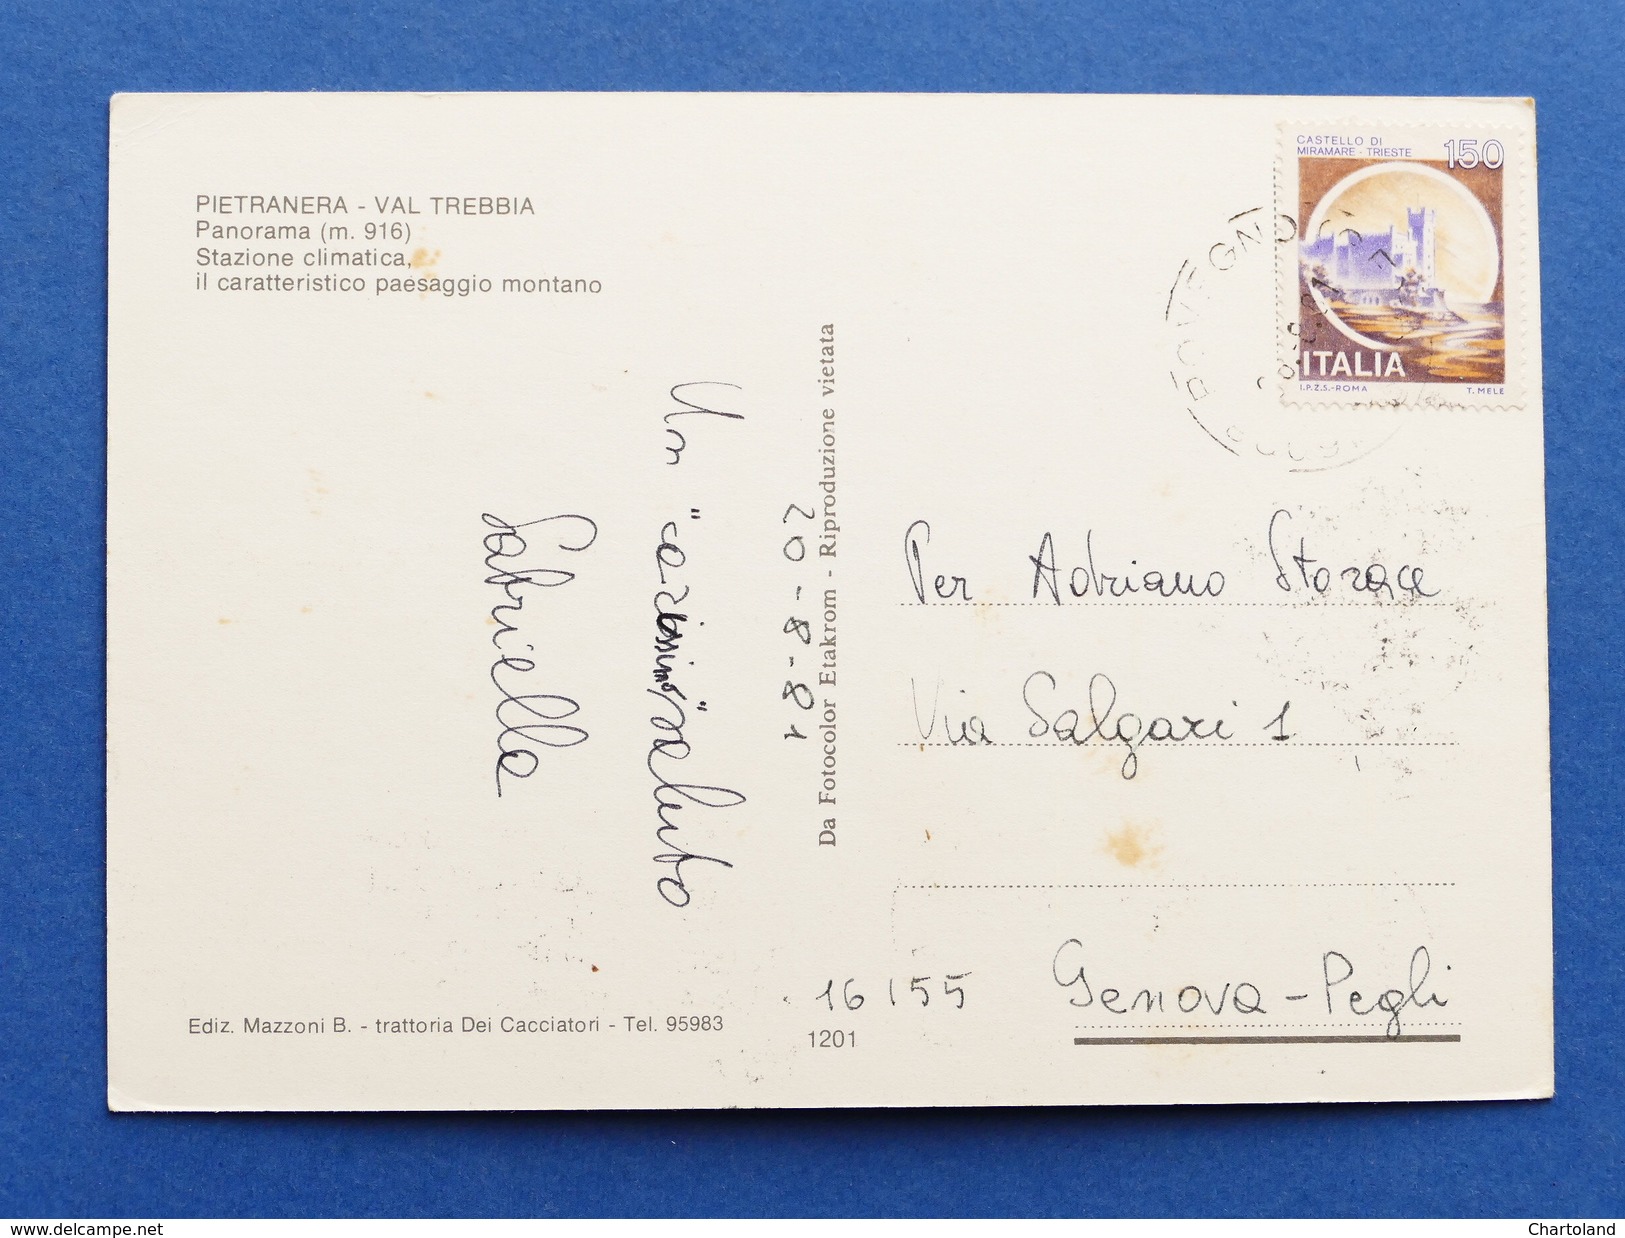 PIETRANERA - VAL TREBBIA
Panorama (m. 916)
Stazione climatica,
il caratteristico paesaggio montano
CASTELLO DI
MIRAMARE - TRIESTE
150
ITALIA
I.P.Z.S.-ROMA
T. MELE
ROVEGNO
20-8-81
Un "carissimo" saluto
Gabriella
Da Fotocolor Etakrom - Riproduzione vietata
Per Adriano Storace
Via Salgari 1
16155 Genova-Pegli
Ediz. Mazzoni B. - trattoria Dei Cacciatori - Tel. 95983
1201
www.delcampe.net
Chartoland